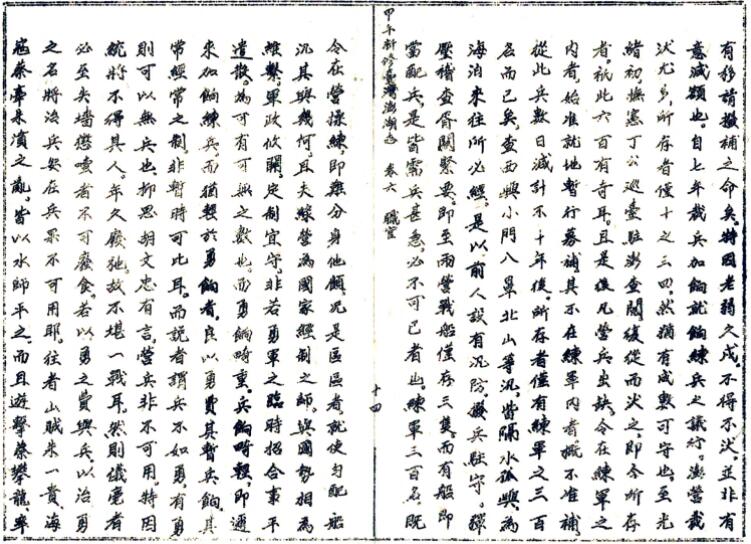 有移請撥補之命矣。特因老弱久戍。不得不汰。並非有
意減額也。自七年裁兵加餉就餉練兵之議行。澎營裁
汰尤多。所存者僅十之三四。然猶有成數可守也。至光
緒初。撫憲丁公巡臺駐澎查閱後。從而汰之。即今所存
者。祇此六百有奇耳。且是後凡營兵出缺。令在練軍之
內者。始准就地暫行募補。其不在練軍內者。概不准補。
從此兵數日減。計不十年後。所存者僅有練軍之三百
名而已矣。查西嶼小門八罩北山等汛。皆隔水孤嶼。為
海消來往所必經。是以前人設有汛防。撥兵駐守。獉
壓稽查胥關緊要。即至兩營戰船僅存三隻。而有船即
當配兵。是皆需兵甚急。必不可已者也。練軍三百名。既
甲午新修臺灣澎湖志 卷六 職官
十四
令在營操練。即難分身他顧。況是區區者。就使勻配船
汛。其與幾何。且夫綠營為國家經制之師。與國勢相為
維繫。軍政攸關。定制宜守。非若勇軍之臨時招合。事平
遣散。為可有可無之數也。而勇餉畸重。兵餉畸輕。即邇
來加餉練兵。而猶輕於勇餉者。良以勇費其暫。兵餉其
常。經常之制。非暫時可比耳。而說者謂兵不如勇。有勇
則可以無兵也。抑思胡文忠有言。營兵非不可用。特因
統將不得其人。年久廢弛。故不堪一戰耳。然則議電者
必至失墻。懲噎者不可廢食。若以勇之費與兵。以治勇
之名將治兵。安在兵果不可用耶。往者山賊朱一貴。海
寇蔡牽朱濆之亂。皆以水師平之。而且遊擊蔡攀龍。率